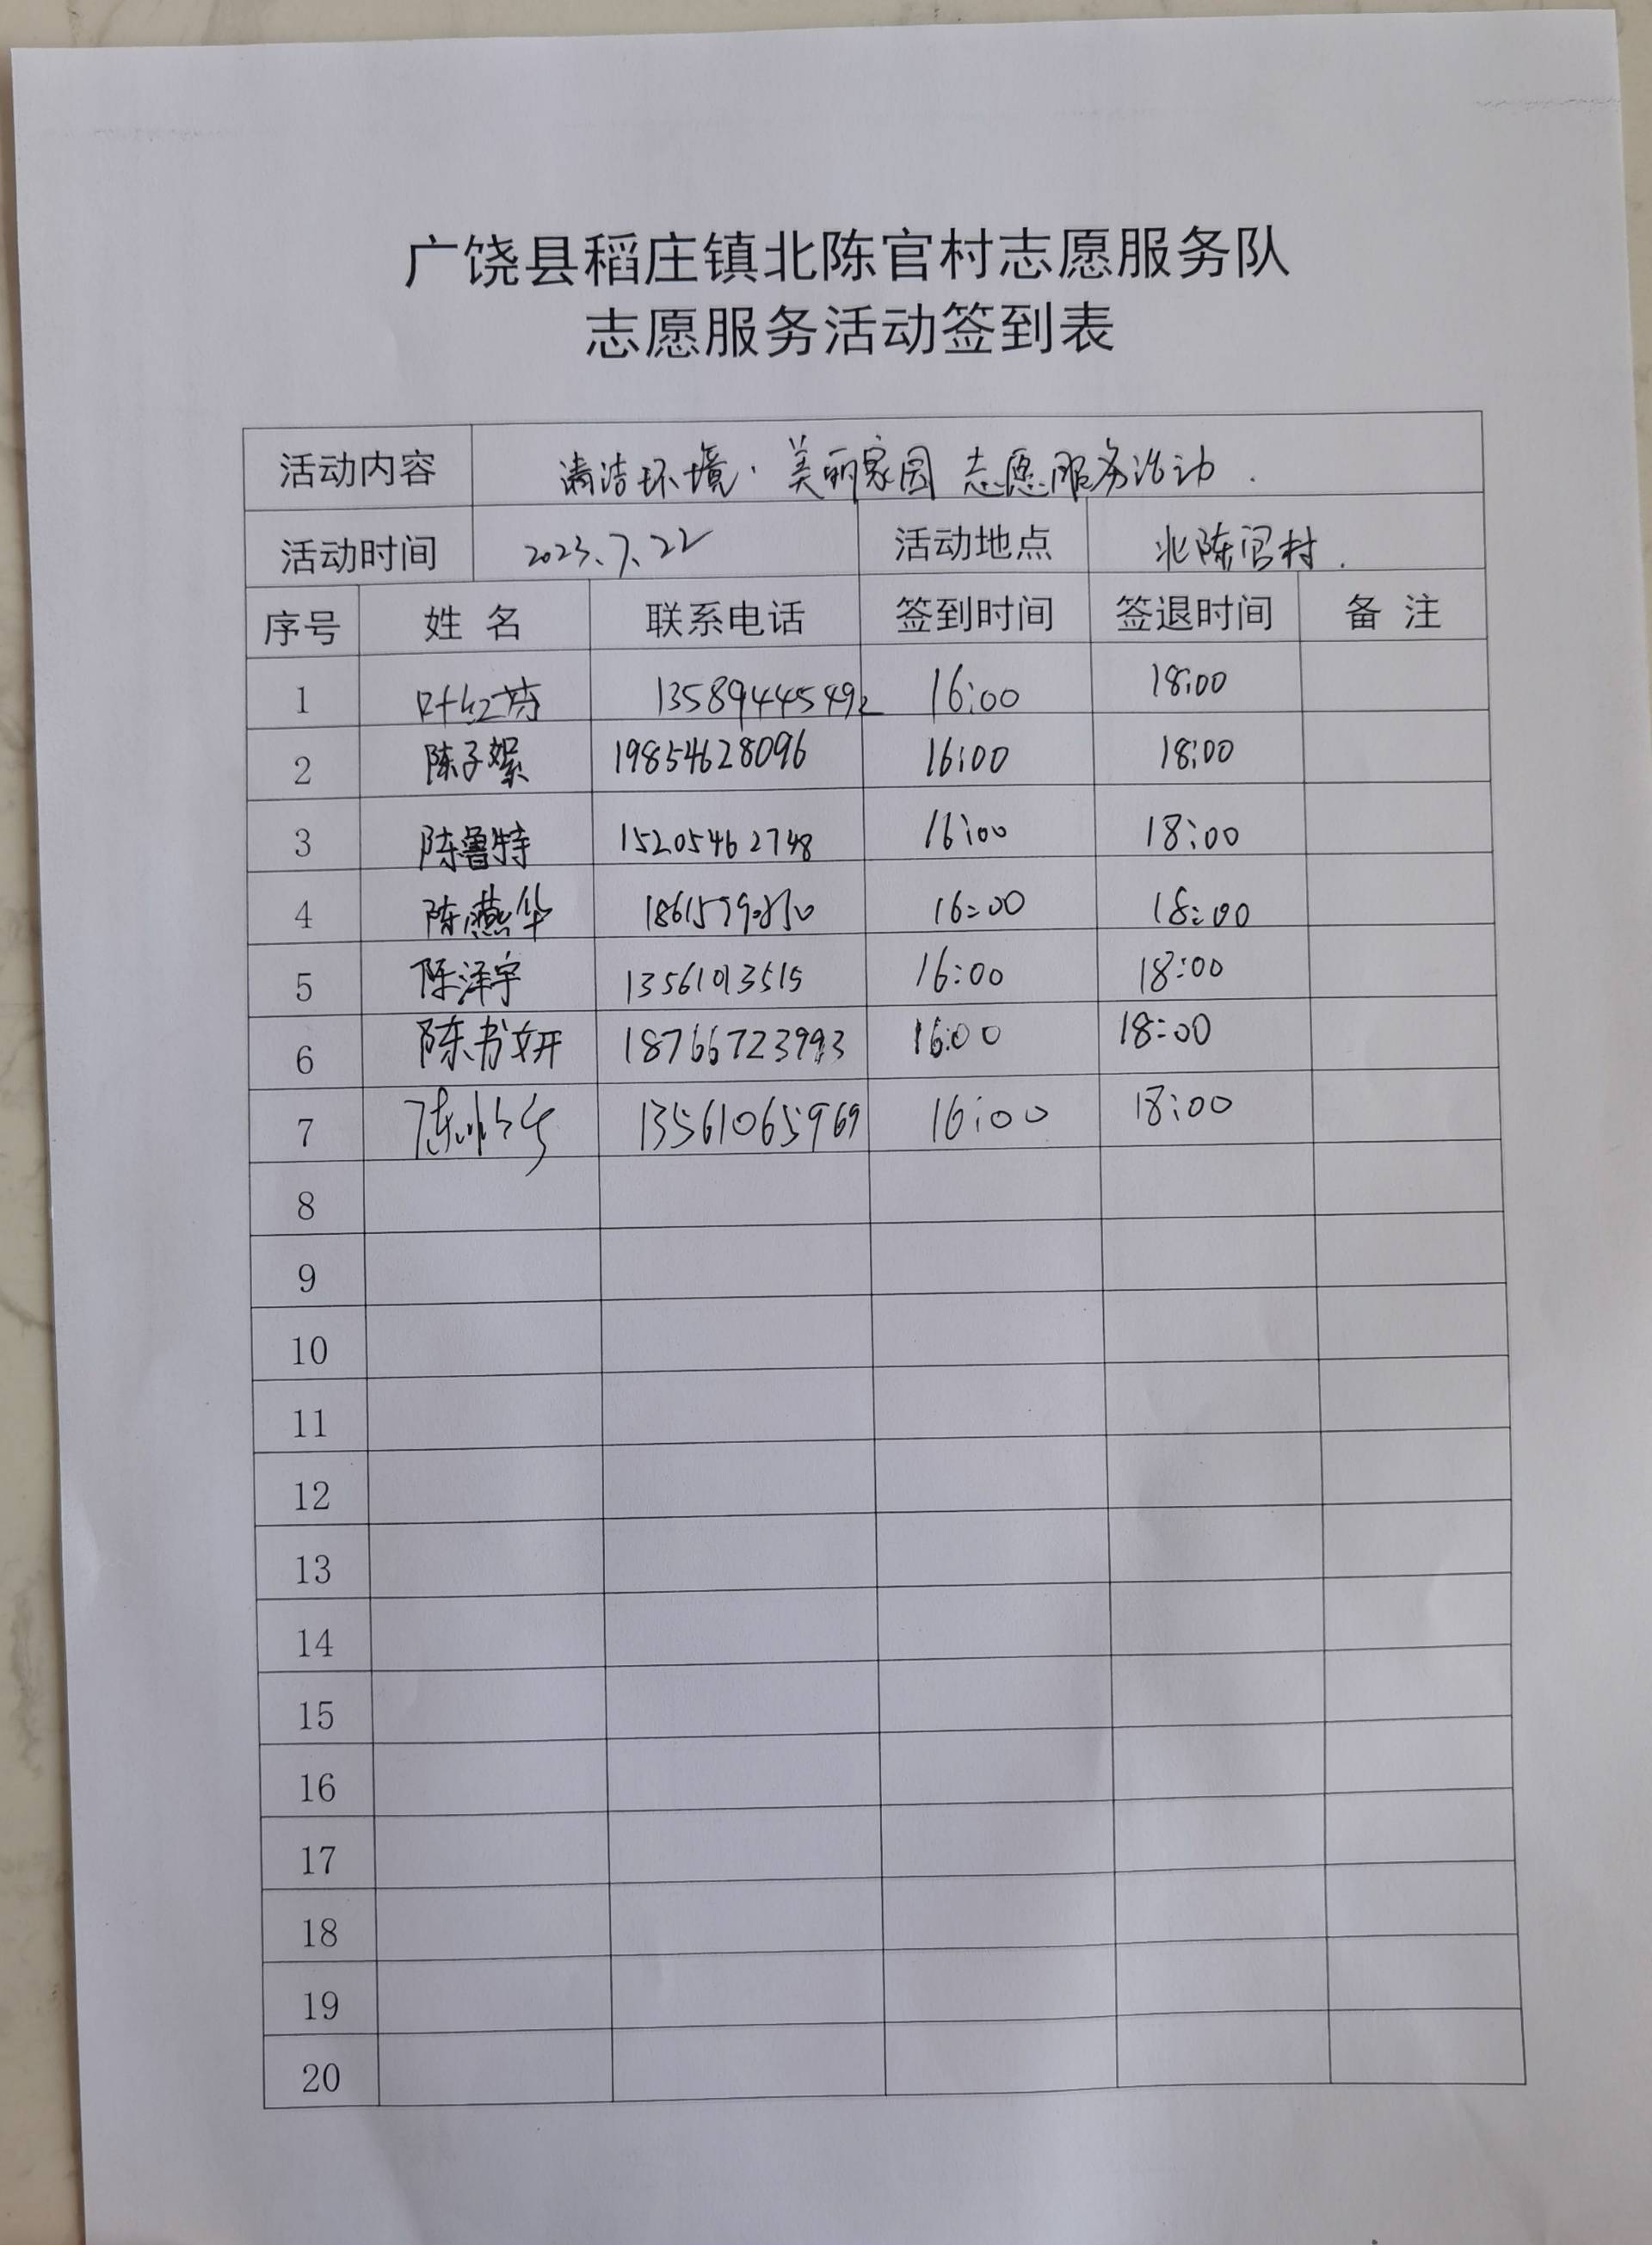 广饶县稻庄镇北陈官村志愿服务队
志愿服务活动签到表
活动内容 清洁环境·美丽家园 志愿服务活动.
活动时间 2023.7.22 活动地点 北陈官村.
序号 姓名 联系电话 签到时间 签退时间 备注
1 叶红芳 13589445492 16:00 18:00
2 陈子絮 19854628096 16:00 18:00
3 陈鲁特 15205462748 16:00 18:00
4 陈燕华 16:00 18:00
5 陈泽宇 16:00 18:00
6 陈书妍 18766723993 16:00 18:00
7 13561065969 16:00 18:00
8
9
10
11
12
13
14
15
16
17
18
19
20